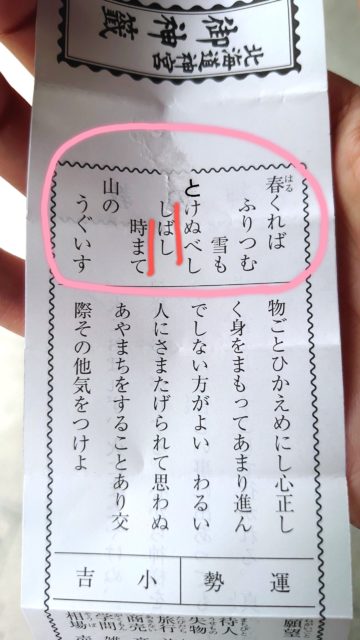 北海道神宮
御神籤
春くれば
はる
ふりつむ
雪も
とけぬべし
しばし
時まて
山の
うぐいす
物ごとひかえめにし心正し
く身をまもってあまり進ん
でしない方がよい わるい
人にさまたげられて思わぬ
あやまちをすることあり交
際その他気をつけよ
運勢
小吉
願望
待人
失物
旅行
商売
学問
相場